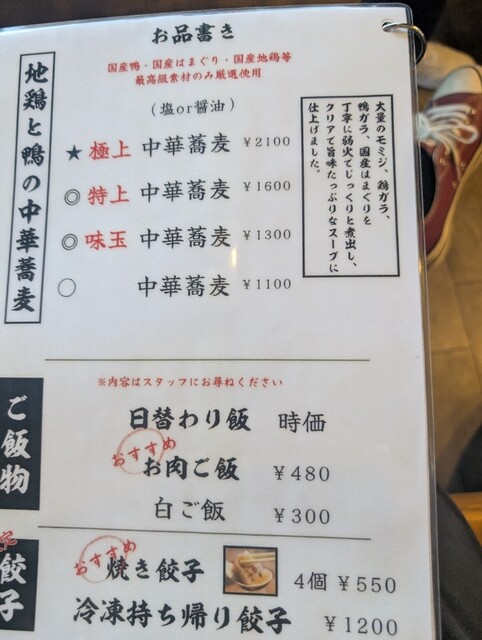 お品書き
国産鴨・国産はまぐり・国産地鶏等
最高級素材のみ厳選使用
地鶏と鴨の中華蕎麦
(塩or醤油)
★ 極上 中華蕎麦 ¥2100
◎ 特上 中華蕎麦 ¥1600
◎ 味玉 中華蕎麦 ¥1300
○ 中華蕎麦 ¥1100
大量のモミジ、鶏ガラ、
鴨ガラ、国産はまぐりを
丁寧に弱火でじっくりと煮出し、
クリアで旨味たっぷりなスープに
仕上げました。
ご飯物
※内容はスタッフにお尋ねください
日替わり飯 時価
おすすめ
お肉ご飯 ¥480
白ご飯 ¥300
餃子
おすすめ
焼き餃子 4個 ¥550
冷凍持ち帰り餃子 ¥1200